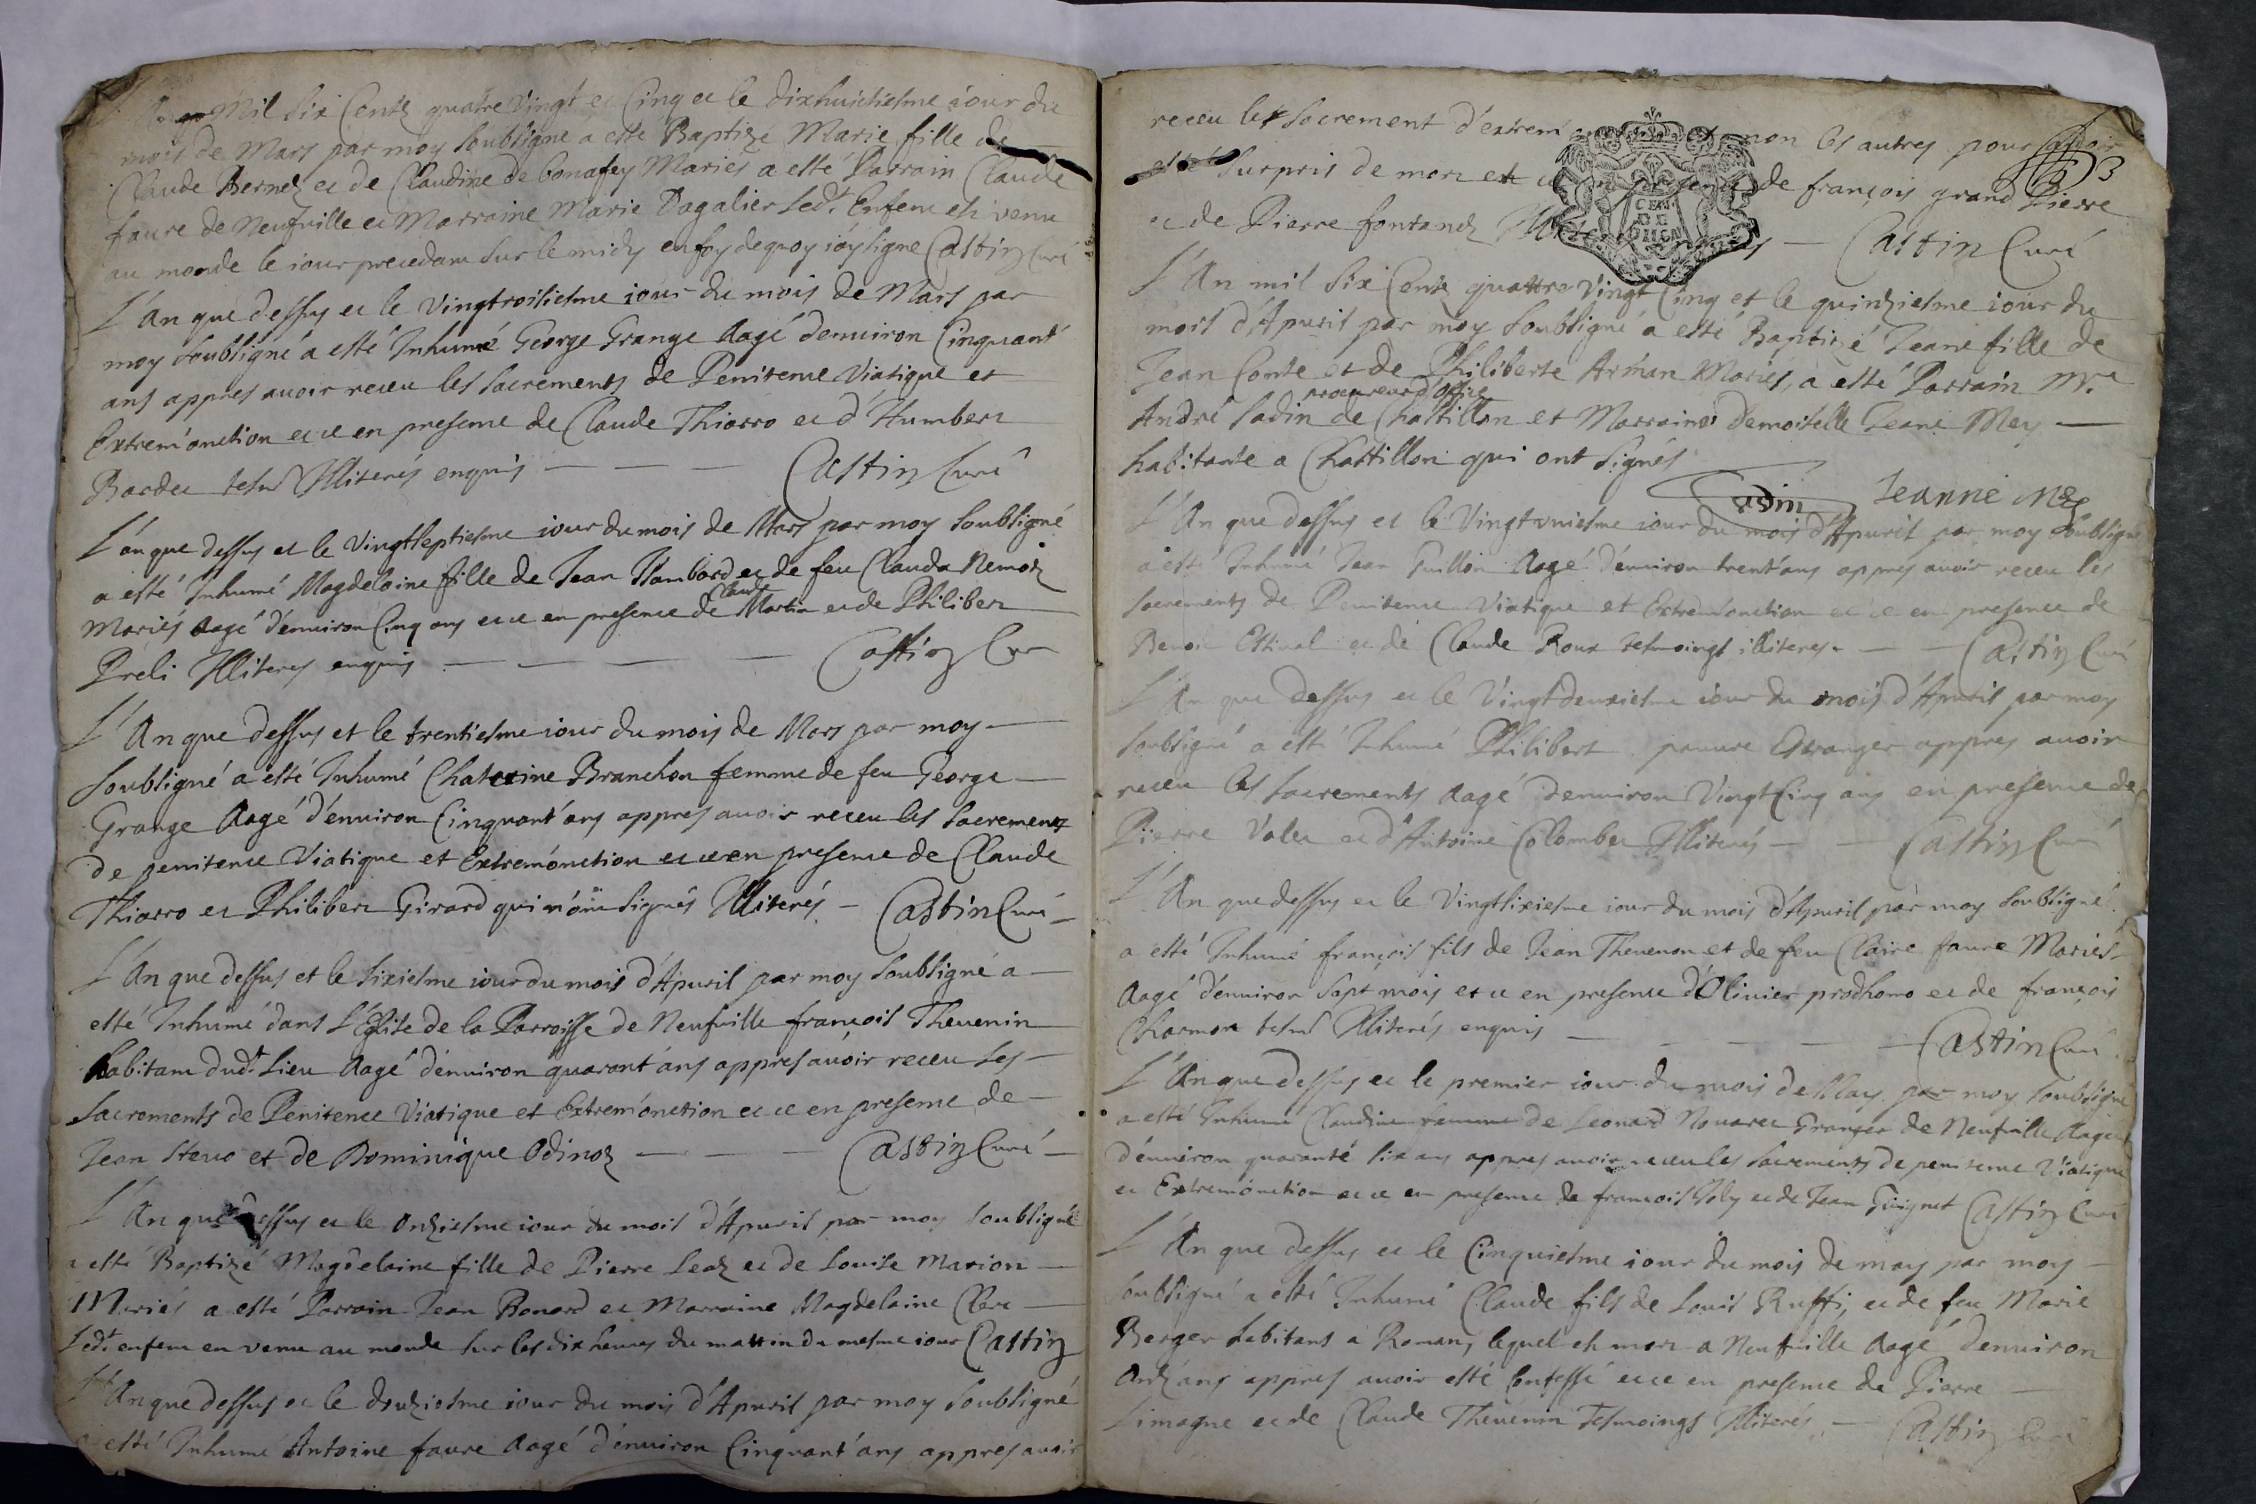 Mil Six Centz quatre Vingt et Cinq et le dixhuictiesme iour du
mois de Mars par moy Soubsigné a esté Baptizé Marie fille de
Claude Bernet et de Claudine de bonafey Mariés a esté Parrain Claude
faure de Neufville et Marraine Marie Dagalier led.t Enfent est venu
au monde le iour precedant Sur le midy enfoy dequoy iáy Signe Castin Curé
L'An que dessus et le Vingtroisiesme iour du mois de Mars par
moy Soubsigné a esté Inhumé George Grange Aagé d'enuiron Cinquant'
ans appres auoir receu les sacrements de Penitence Viatique et
Extrem'onction et ce en presence de Claude Thiorro et d'Humbert
Bardet tesm.s Illiterés enquis — — — Castin Curé
L'an que dessus et le Vingtseptiesme iour du mois de Mars par moy Soubsigné
a esté Inhumé Magdelaine fille de Jean Rambord et de feu Clauda Remoz
Claude
Mariés Aagé d'enuiron Cinq ans et ce en presence de Martin et de Philibert
Preli Illiteres enquis — — — — Castin Cur
L'An que dessus et le trentiesme iour du mois de Mars par moy —
Soubsigné a esté Inhumé Chaterine Branchon femme de feu George —
Grange Aagé d'enuiron Cinquant'ans appres auoir receu les Sacrements
de penitence Viatique et Extrem'onction et ce en presence de Claude
Thiorro et Philibert Girard qui n'ont Signés Illiterés — Castin Curé —
L'An que dessus et le Sixiesme iour du mois d'Apuril par moy Soubsigné a —
esté Inhumé dans L'Eglise de la Parroisse de Neufville françois Theuenin
habitant dud.t Lieu Aagé d'enuiron quarant'ans appres auoir receu Les —
Sacrements de Penitence Viatique et Extrem'onction et ce en presence de —
Jean Steuo et de Dominique Odinoz — — — Castin Curé —
L'An que dessus et le Onziesme iour du mois d'Apuril par moy Soubsigné
a esté Baptizé Magdelaine fille de Pierre Leaz et de Louise Marion —
Mariés a esté Parrain Jean Bonard et Marraine Magdelaine Clere —
Led.t enfent est venu au monde Sur les dix heures du mattin du mesme iour Castin
L'An que dessus et le douziesme iour du mois d'Apuril par moy Soubsigné
a esté Inhumé Antoine faure Aagé d'enuiron Cinquant'ans appres auoir
receu les Sacrement d'extrem non les autres pour auoir
3
esté Surpris de mort et ce en presence de françois grand Pierre
et de Pierre fontanel — Castin Curé
GEN DE DIION
L'An mil Six Centz quattre Vingt Cinq et le quinziesme iour du
mois d'Apuril par moy Soubsigné a esté Baptizé Jeane fille de
Jean Conte et de Philiberte Arman Mariés, a esté Parrain Mr.e
procureur d'office
André Sadin de Chastillon et Marraine Demoiselle Jeane Mey —
habitante a Chastillon qui ont Signés
Sadin Jeanne Mey
L'An que dessus et le Vingtvniesme iour du mois d'Apuril par moy Soubsigné
a esté Inhumé Jean Guillon Aagé d'enuiron trent'ans appres auoir receu les
Sacrements de Penitence Viatique et Extrem'onction et ce en presence de
Benoit Estival et de Claude Roux tesmoings illiteres — — Castin Curé
L'An que dessus et le Vingtdeuxiesme iour du mois d'Apuril par moy
Soubsigné a esté Inhumé Philibert pauure Estranger appres auoir
receu les Sacrements Aagé d'enuiron Vingt Cinq ans en presence de
Pierre Valet et d'Antoine Colombet Illiterés — — Castin Curé
L'An que dessus et le Vingtsixiesme iour du mois d'Apuril par moy Soubsigné
a esté Inhumé françois fils de Jean Theuenon et de feu Claire faure Mariés
Aagé d'enuiron Sept mois et ce en presence d'Oliuier prodhomo et de françois
Charmon tesm.s Illiterés enquis — — — — Castin Curé
L'An que dessus et le premier iour du mois de May par moy Soubsigné
a esté Inhumé Claudine femme de Leonard Nouaret Granger de Neufville Aagée
d'enuiron quarante Six ans appres auoir receu les Sacrements de penitence Viatique
et Extrem'onction et ce en presence de francois Joly et de Jean Guignet Castin Curé
L'An que dessus et le Cinquiesme iour du mois de may par moy —
Soubsigné a esté Inhumé Claude fils de Louis Ruffi, et de feu Marie
Berger habitans a Romans, lequel est mort a Neufville Aagé d'enuiron
Onz'ans appres auoir esté Confessé et ce en presence de Pierre —
Limagne et de Claude Theuenin Tesmoings Illiterés — Castin Curé